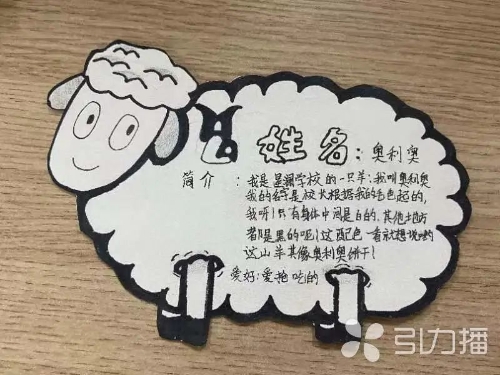 姓名:奥利奥
简介:我是星澜学校的一只羊,我叫奥利奥
我的名字是校长根据我的毛色起的,
我呀!只有身体中间是白的,其他地方
都是黑的呢!这配色一看就想说哟
这山羊真像奥利奥饼干!
爱好:爱抢吃的
引力播